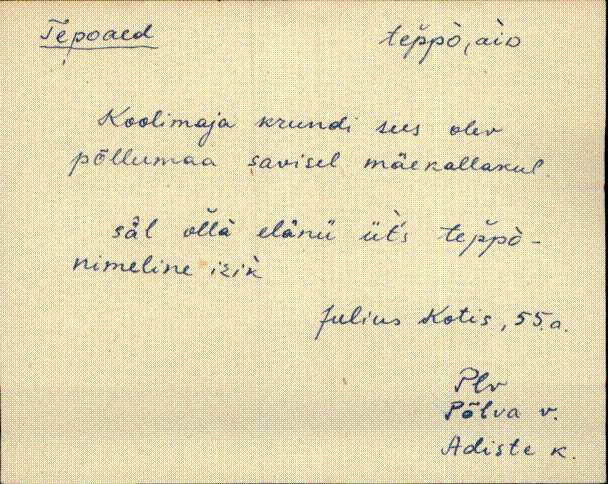 Tepoaed teppò, aìo
Koolimaja krundi sees olev
põllumaa savisel mäekallakul.
säl ollà elänü üt's teppò-
nimeline izik
Julius Kotis, 55.a.
Plv
Põlva v.
Adiste k.